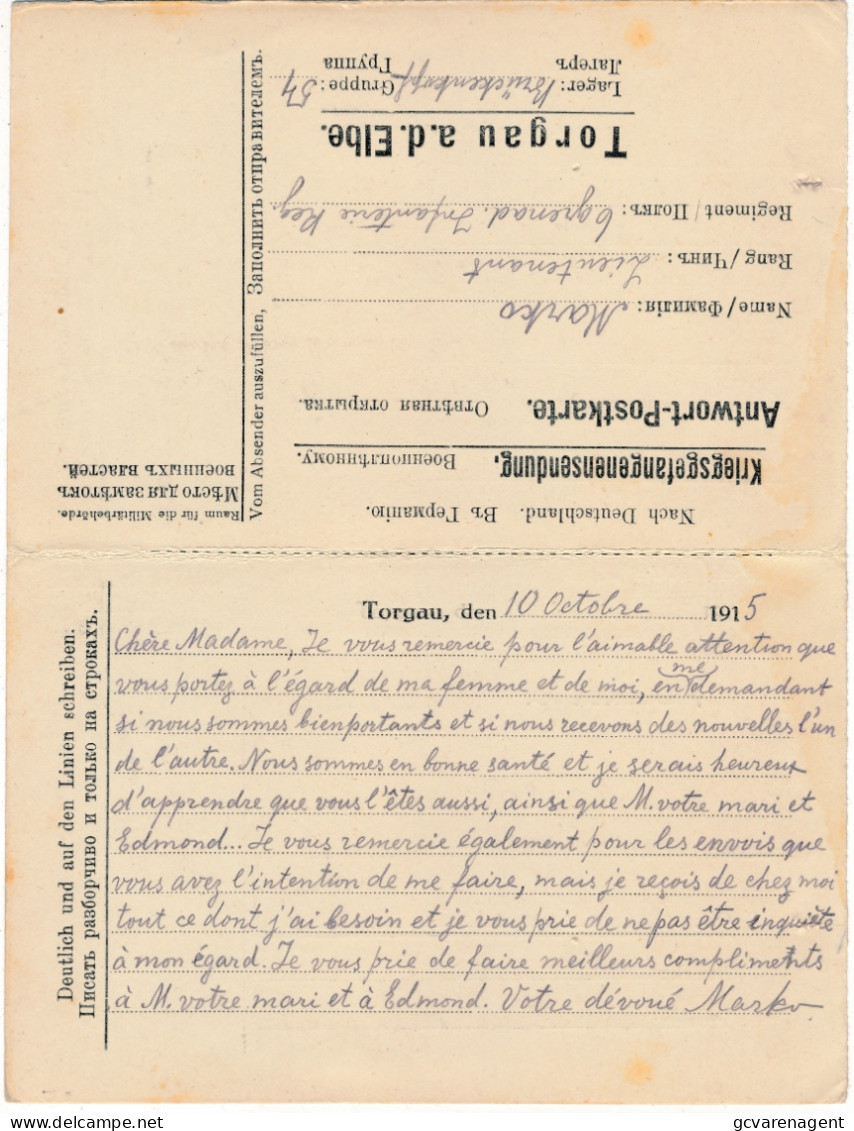 Nach Deutschland. Въ Германію.
Kriegsgefangenensendung, Военноплѣнному.
Antwort-Postkarte. Отвѣтная открытка.
Name/Фамилія: Marko
Rang/Чинъ: Lieutenant
Regiment/Полкъ: 6 grenad. Infanterie Reg.
Torgau a.d. Elbe.
Lager: Brückenkopf Gruppe: 54
Лагерь Группа
Vom Absender auszufüllen, Заполнить отправителемъ.
Raum für die Militärbehörde.
Мѣсто для замѣтокъ
военныхъ властей.
Deutlich und auf den Linien schreiben.
Писать разборчиво и только на строкахъ.
Torgau, den 10 Octobre 1915
Chère Madame, Je vous remercie pour l'aimable attention que
vous portez à l'égard de ma femme et de moi, en me demandant
si nous sommes bien portants et si nous recevons des nouvelles l'un
de l'autre. Nous sommes en bonne santé et je serais heureux
d'apprendre que vous l'êtes aussi, ainsi que M. votre mari et
Edmond... Je vous remercie également pour les envois que
vous avez l'intention de me faire, mais je reçois de chez moi
tout ce dont j'ai besoin et je vous prie de ne pas être inquiète
à mon égard. Je vous prie de faire meilleurs compliments
à M. votre mari et à Edmond. Votre dévoué Marko
gcvarenagent
delcampe.net